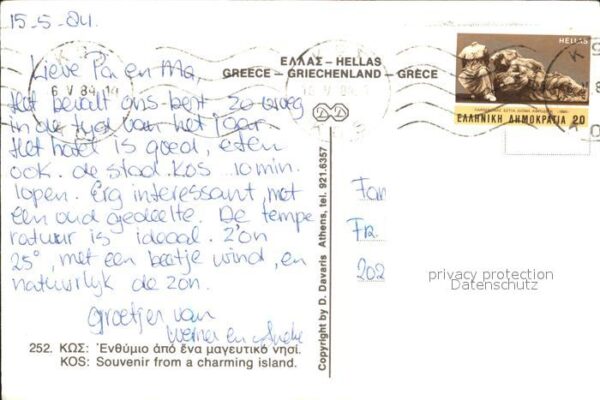 15-5-84.
Lieve Pa en Ma,
Het bevalt ons best zo vroeg
in de tijd van het jaar.
Het hotel is goed, eten
ook. de stad Kos 10 min.
lopen. Erg interessant, met
een oud gedeelte. De tempe
ratuur is ideaal. Z'on
25°, met een beetje wind, en
natuurlijk de zon.
Groetjes van
Werner en
252. ΚΩΣ: Ἐνθύμιο ἀπό ἕνα μαγευτικό νησί.
KOS: Souvenir from a charming island.
ΕΛΛΑΣ – HELLAS
GREECE – GRIECHENLAND – GRÈCE
Copyright by D. Davaris Athens, tel. 921.6357
HELLAS
ΕΛΛΗΝΙΚΗ ΔΗΜΟΚΡΑΤΙΑ 20
Fam
Fr
202
privacy protection
Datenschutz